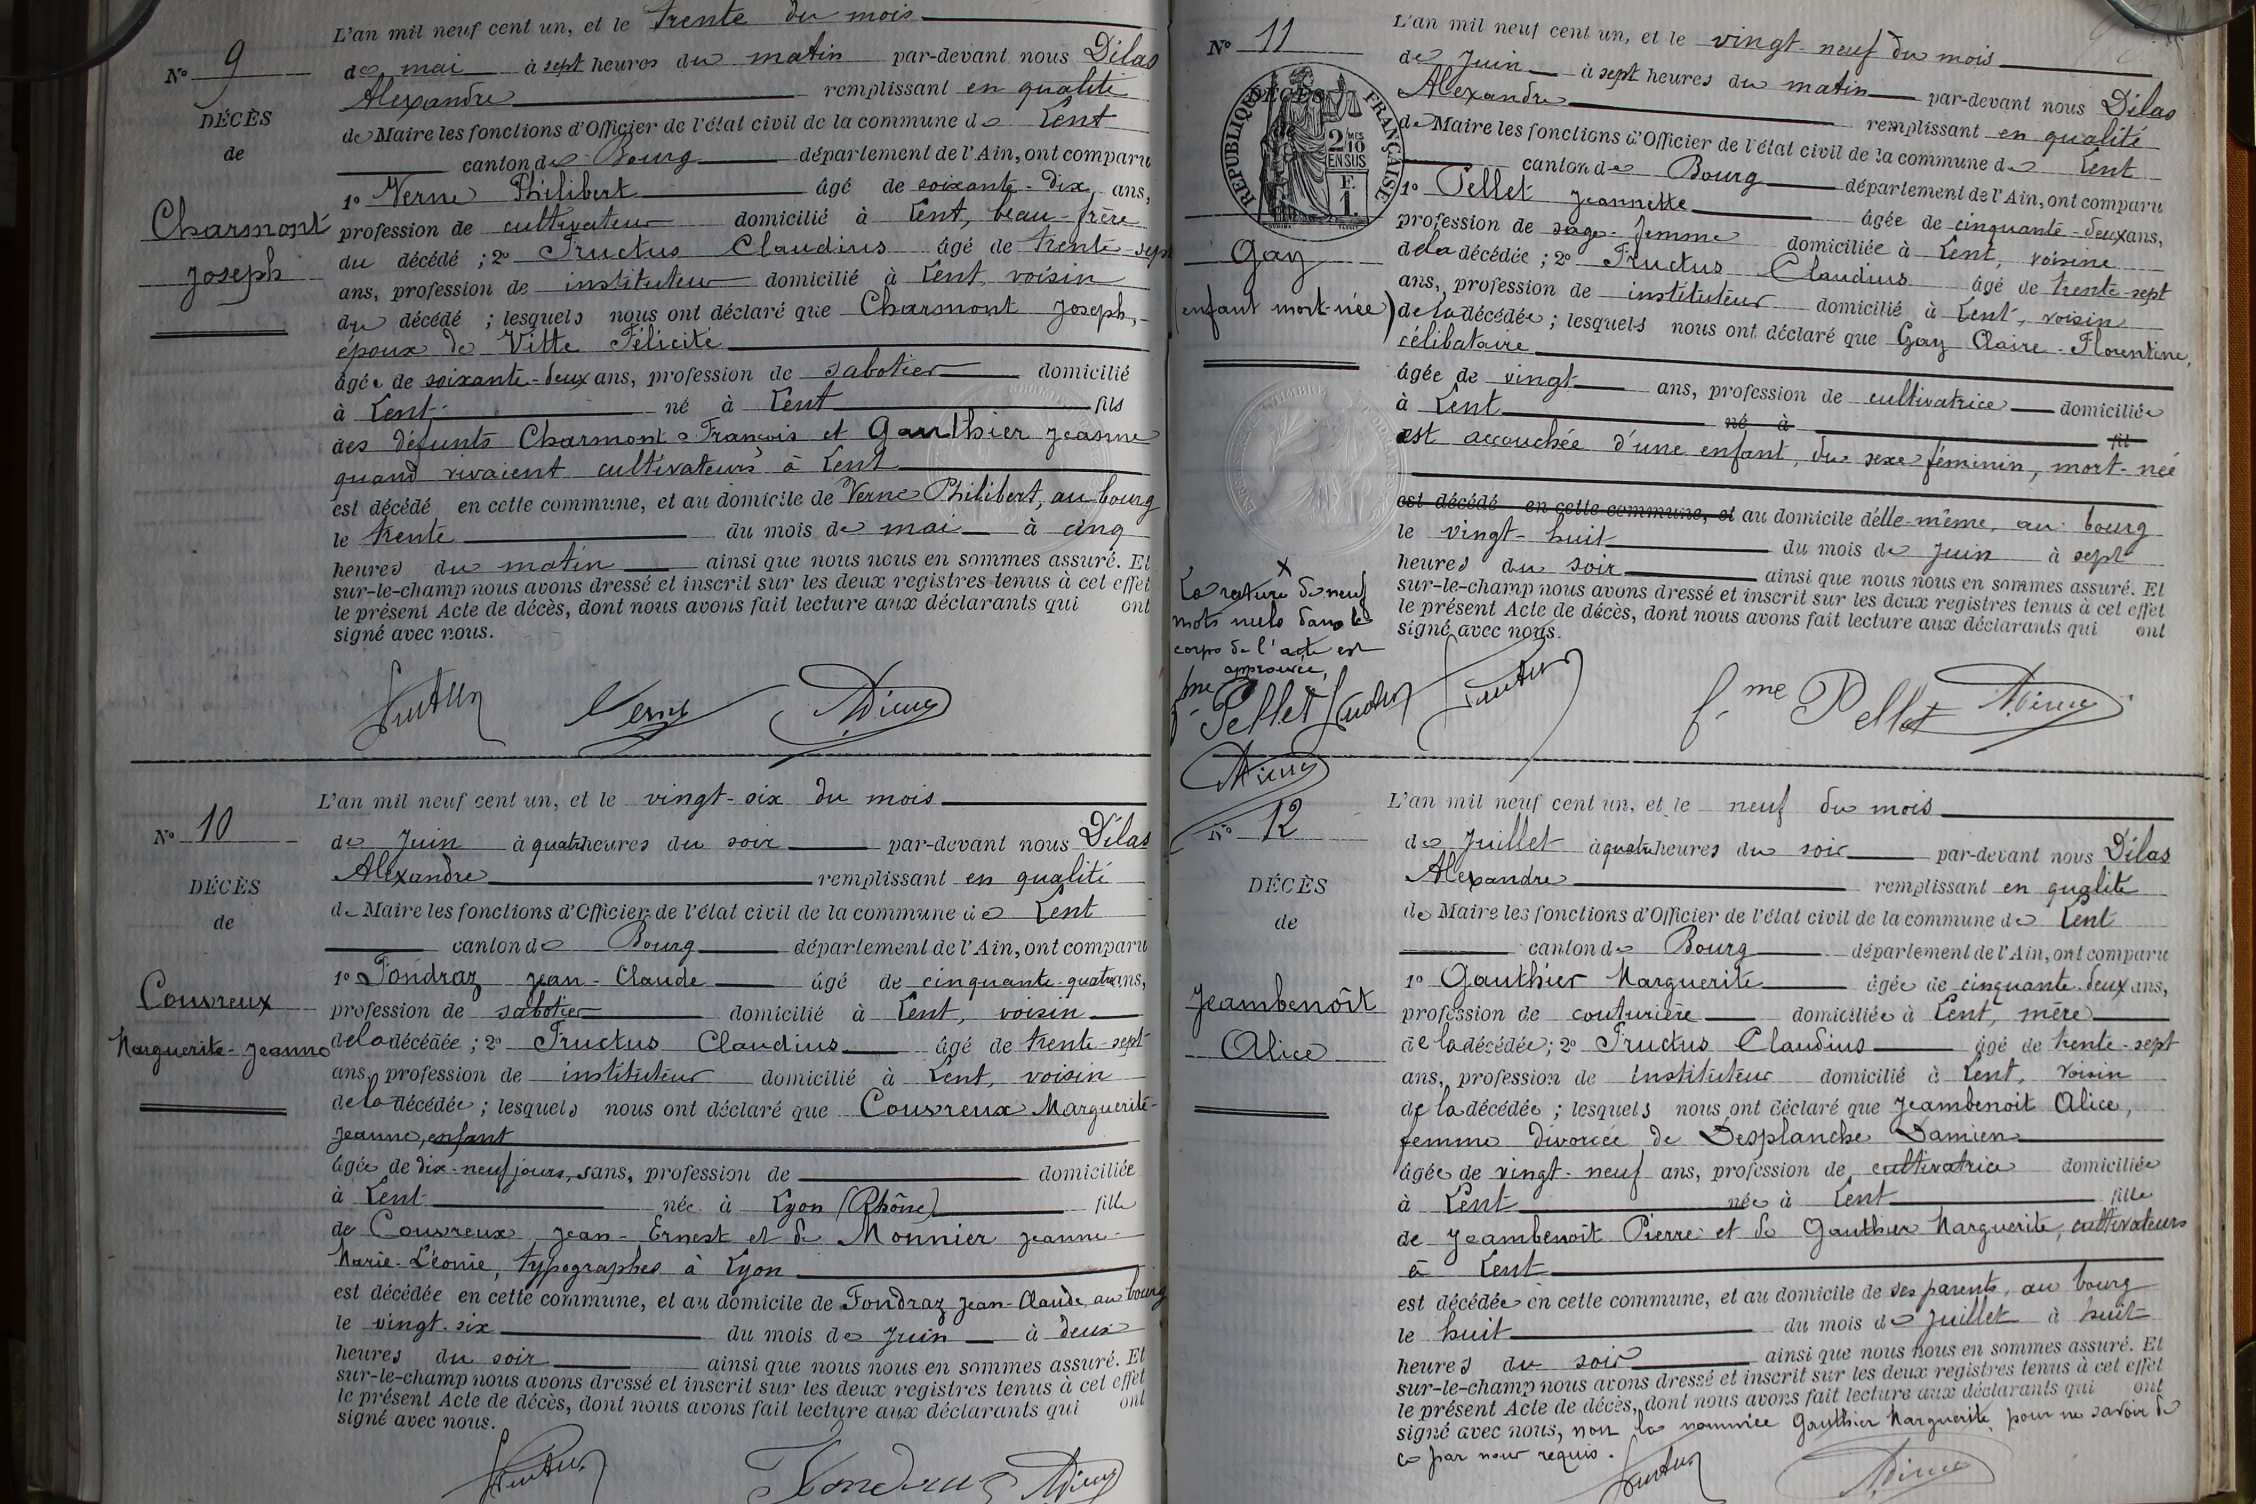 L'an mil neuf cent un, et le trente du mois
N° 9
de mai à sept heures du matin par-devant nous Dilas
Alexandre remplissant en qualité
DÉCÈS
de Maire les fonctions d'Officier de l'état civil de la commune de Lent
de
canton de Bourg département de l'Ain, ont comparu
1° Verne Philibert âgé de soixante-dix ans,
Charmont
profession de cultivateur domicilié à Lent, beau-frère
du décédé ; 2° Fructus Claudius âgé de trente-sept
Joseph
ans, profession de instituteur domicilié à Lent, voisin
du décédé ; lesquels nous ont déclaré que Charmont Joseph,
époux de Vitte Félicité
âgé de soixante-deux ans, profession de sabotier domicilié
à Lent né à Lent fils
des défunts Charmont François et Gauthier Jeanne
quand vivaient cultivateurs à Lent
est décédé en cette commune, et au domicile de Verne Philibert, au bourg
le trente du mois de mai à cinq
heures du matin ainsi que nous nous en sommes assuré. Et
sur-le-champ nous avons dressé et inscrit sur les deux registres tenus à cet effet
le présent Acte de décès, dont nous avons fait lecture aux déclarants qui ont
signé avec nous.
Verne
L'an mil neuf cent un, et le vingt-six du mois
N° 10
de Juin à quatre heures du soir par-devant nous Dilas
Alexandre remplissant en qualité
DÉCÈS
de Maire les fonctions d'Officier de l'état civil de la commune de Lent
de
canton de Bourg département de l'Ain, ont comparu
1° Fondraz Jean-Claude âgé de cinquante-quatre ans,
Couvreux
profession de sabotier domicilié à Lent, voisin
Marguerite-Jeanne
de la décédée ; 2° Fructus Claudius âgé de trente-sept
ans, profession de instituteur domicilié à Lent, voisin
de la décédée ; lesquels nous ont déclaré que Couvreux Marguerite-
Jeanne, enfant
âgée de dix-neuf jours, sans, profession de domiciliée
à Lent née à Lyon (Rhône) fille
de Couvreux, Jean-Ernest et de Monnier Jeanne-
Marie-Léonie, typographes à Lyon
est décédée en cette commune, et au domicile de Fondraz Jean-Claude, au bourg
le vingt-six du mois de Juin à deux
heures du soir ainsi que nous nous en sommes assuré. Et
sur-le-champ nous avons dressé et inscrit sur les deux registres tenus à cet effet
le présent Acte de décès, dont nous avons fait lecture aux déclarants qui ont
signé avec nous.
Fondraz
L'an mil neuf cent un, et le vingt-neuf du mois
N° 11
de Juin à sept heures du matin par-devant nous Dilas
Alexandre remplissant en qualité
DÉCÈS
RÉPUBLIQUE FRANÇAISE
2 MES
10
EN SUS
F.
1.
de Maire les fonctions d'Officier de l'état civil de la commune de Lent
de
canton de Bourg département de l'Ain, ont comparu
1° Pellet Jeannette âgée de cinquante-deux ans,
profession de sage-femme domiciliée à Lent, voisine
Gay
de la décédée ; 2° Fructus Claudius âgé de trente-sept
ans, profession de instituteur domicilié à Lent, voisin
(enfant mort-née)
de la décédée ; lesquels nous ont déclaré que Gay Claire-Florentine,
célibataire
âgée de vingt ans, profession de cultivatrice domiciliée
à Lent né à fil
est accouchée d'une enfant, du sexe féminin, mort-née
est décédé en cette commune, et au domicile d'elle-même, au bourg
le vingt-huit du mois de Juin à sept
heures du soir ainsi que nous nous en sommes assuré. Et
sur-le-champ nous avons dressé et inscrit sur les deux registres tenus à cet effet
le présent Acte de décès, dont nous avons fait lecture aux déclarants qui ont
signé avec nous.
X
La rature de neuf
mots nuls dans le
corps de l'acte est
approuvée,
fme Pellet
f-me Pellet
L'an mil neuf cent un, et le neuf du mois
N° 12
de Juillet à quatre heures du soir par-devant nous Dilas
Alexandre remplissant en qualité
DÉCÈS
de Maire les fonctions d'Officier de l'état civil de la commune de Lent
de
canton de Bourg département de l'Ain, ont comparu
1° Gauthier Marguerite âgée de cinquante-deux ans,
Jeambenoît
profession de couturière domiciliée à Lent, mère
Alice
de la décédée ; 2° Fructus Claudius âgé de trente-sept
ans, profession de instituteur domicilié à Lent, voisin
de la décédée ; lesquels nous ont déclaré que Jeambenoit Alice,
femme divorcée de Desplanche Damien
âgée de vingt-neuf ans, profession de cultivatrice domiciliée
à Lent née à Lent fille
de Jeambenoit Pierre et de Gauthier Marguerite, cultivateurs
à Lent
est décédée en cette commune, et au domicile de ses parents, au bourg
le huit du mois de Juillet à huit
heures du soir ainsi que nous nous en sommes assuré. Et
sur-le-champ nous avons dressé et inscrit sur les deux registres tenus à cet effet
le présent Acte de décès, dont nous avons fait lecture aux déclarants qui ont
signé avec nous, non la nommée Gauthier Marguerite, pour ne savoir de
ce par nous requis.